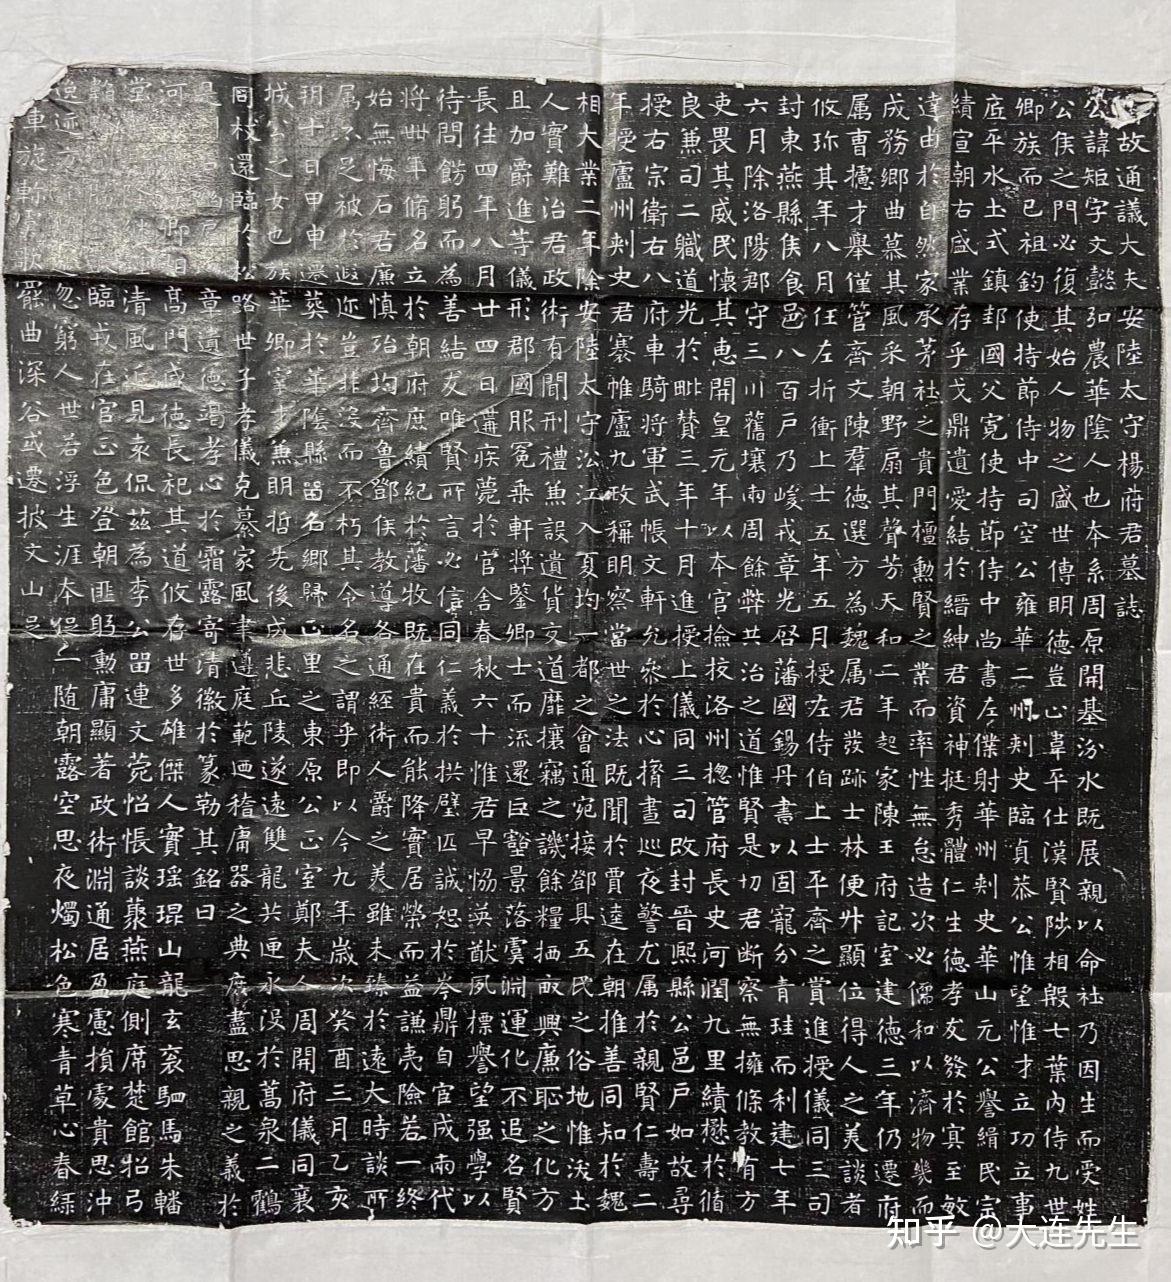 故通議大夫安陸太守楊府君墓誌
公諱矩字文懿弘農華陰人也本系周原開基汾水既展親以命社乃因生而受姓
公侯之門必復其始人物之盛世傳明德豈止韋平仕漢賢陟相殷七葉內侍九世
卿族而已祖鈞使持節侍中司空公雍華二州刾史臨貞恭公惟望惟才立功立事
庭平水土式鎮邽國父寬使持節侍中尚書左僕射華州刺史華山元公譽緝民宗
績宣朝右盛業存乎戈鼎遺愛結於縉紳君資神挺秀體仁生德孝友發於寘至敏
達由於自然家承茅社之貴門檀勲賢之業而率性無怠造次必儒和以濟物幾而
成務鄉曲慕其風采朝野扇其聲芳天和二年起家陳王府記室建德三年仍遷府
属曹攄才舉僅管齊文陳羣德選方為魏属君發跡士林便升顯位得人之美談者
攸珎其年八月任左折衝上士五年五月授左侍伯上士平齊之賞進授儀同三司
封東燕縣侯食邑八百戶乃峻戎章光啓藩國錫丹書以固寵分青珪而利建七年
六月除洛陽郡守三川舊壤兩周餘弊共治之道惟賢是切君断察無擁條教有方
吏畏其威民懷其惠開皇元年以本官撿挍洛州揔管府長史河潤九里績懋於循
良兼司二職道光於毗賛三年十月進授上儀同三司改封晉熙縣公邑戶如故尋
授右宗衛右八府車騎將軍武帳文軒允叅於心膂晝巡夜警尤属於親賢仁壽二
年授廬州刾史君褰帷廬九政稱明察當世之法既聞於賈逵在朝推善同知於魏
相大業二年除安陸太守沿江入夏均一都之會通宛接鄧具五民之俗地惟沃土
人實難治君政術有聞刑禮兼設遺貨交道靡攘竊之譏餘糧栖畝興廉恥之化方
且加爵進等儀形郡國服冕乘軒獎鑒卿士而流還巨壑景落虞淵運化不追名賢
長往四年八月廿四日遘疾薨於官舍春秋六十惟君早恊英猷夙標譽望强學以
待問餝躬而為善結友唯賢所言必信同仁義於拱璧匹誠恕於岑鼎自宦成兩代
將卌年脩名立於朝府庶績紀於藩牧既在貴而能降實居榮而益謙夷險若一終
始無悔石君廉慎殆均齊魯鄧侯教導各通經術人爵之羙雖未臻於遠大時談所
属不足被於遐迩豈非沒而不朽其令名之謂乎即以今九年歲次癸酉三月乙亥
玥十日甲申遷葬於華陰縣畱名鄉歸正里之東原公正室鄭夫人周開府儀同襄
城公之女也族華卿宰才兼明哲先後成悲丘陵遂遠雙龍共匣永沒於蒿泉二鶴
同㭜還臨於松路世子孝儀克慕家風聿遵庭範迺稽庸器之典庶盡思親之義於
是章遺德竭孝心於霜露寄清徽於篆勒其銘曰
河卿相髙門成德長祀其道攸存世多雄傑人實瑶琨山龍玄衮駟馬朱轓
堂清風近見袁侃茲為李公畱連文菀怊悵談蘂燕庭側席楚館招弓
臨戎在官正色登朝匪躬勲庸顯著政術淵通居盈慮損處貴思沖
逸迹方忽窮人世若浮生涯本促一随朝露空思夜燭松色寒青草心春緑
車旋斬歌罷曲深谷或遷披文山足
知乎 @大连先生